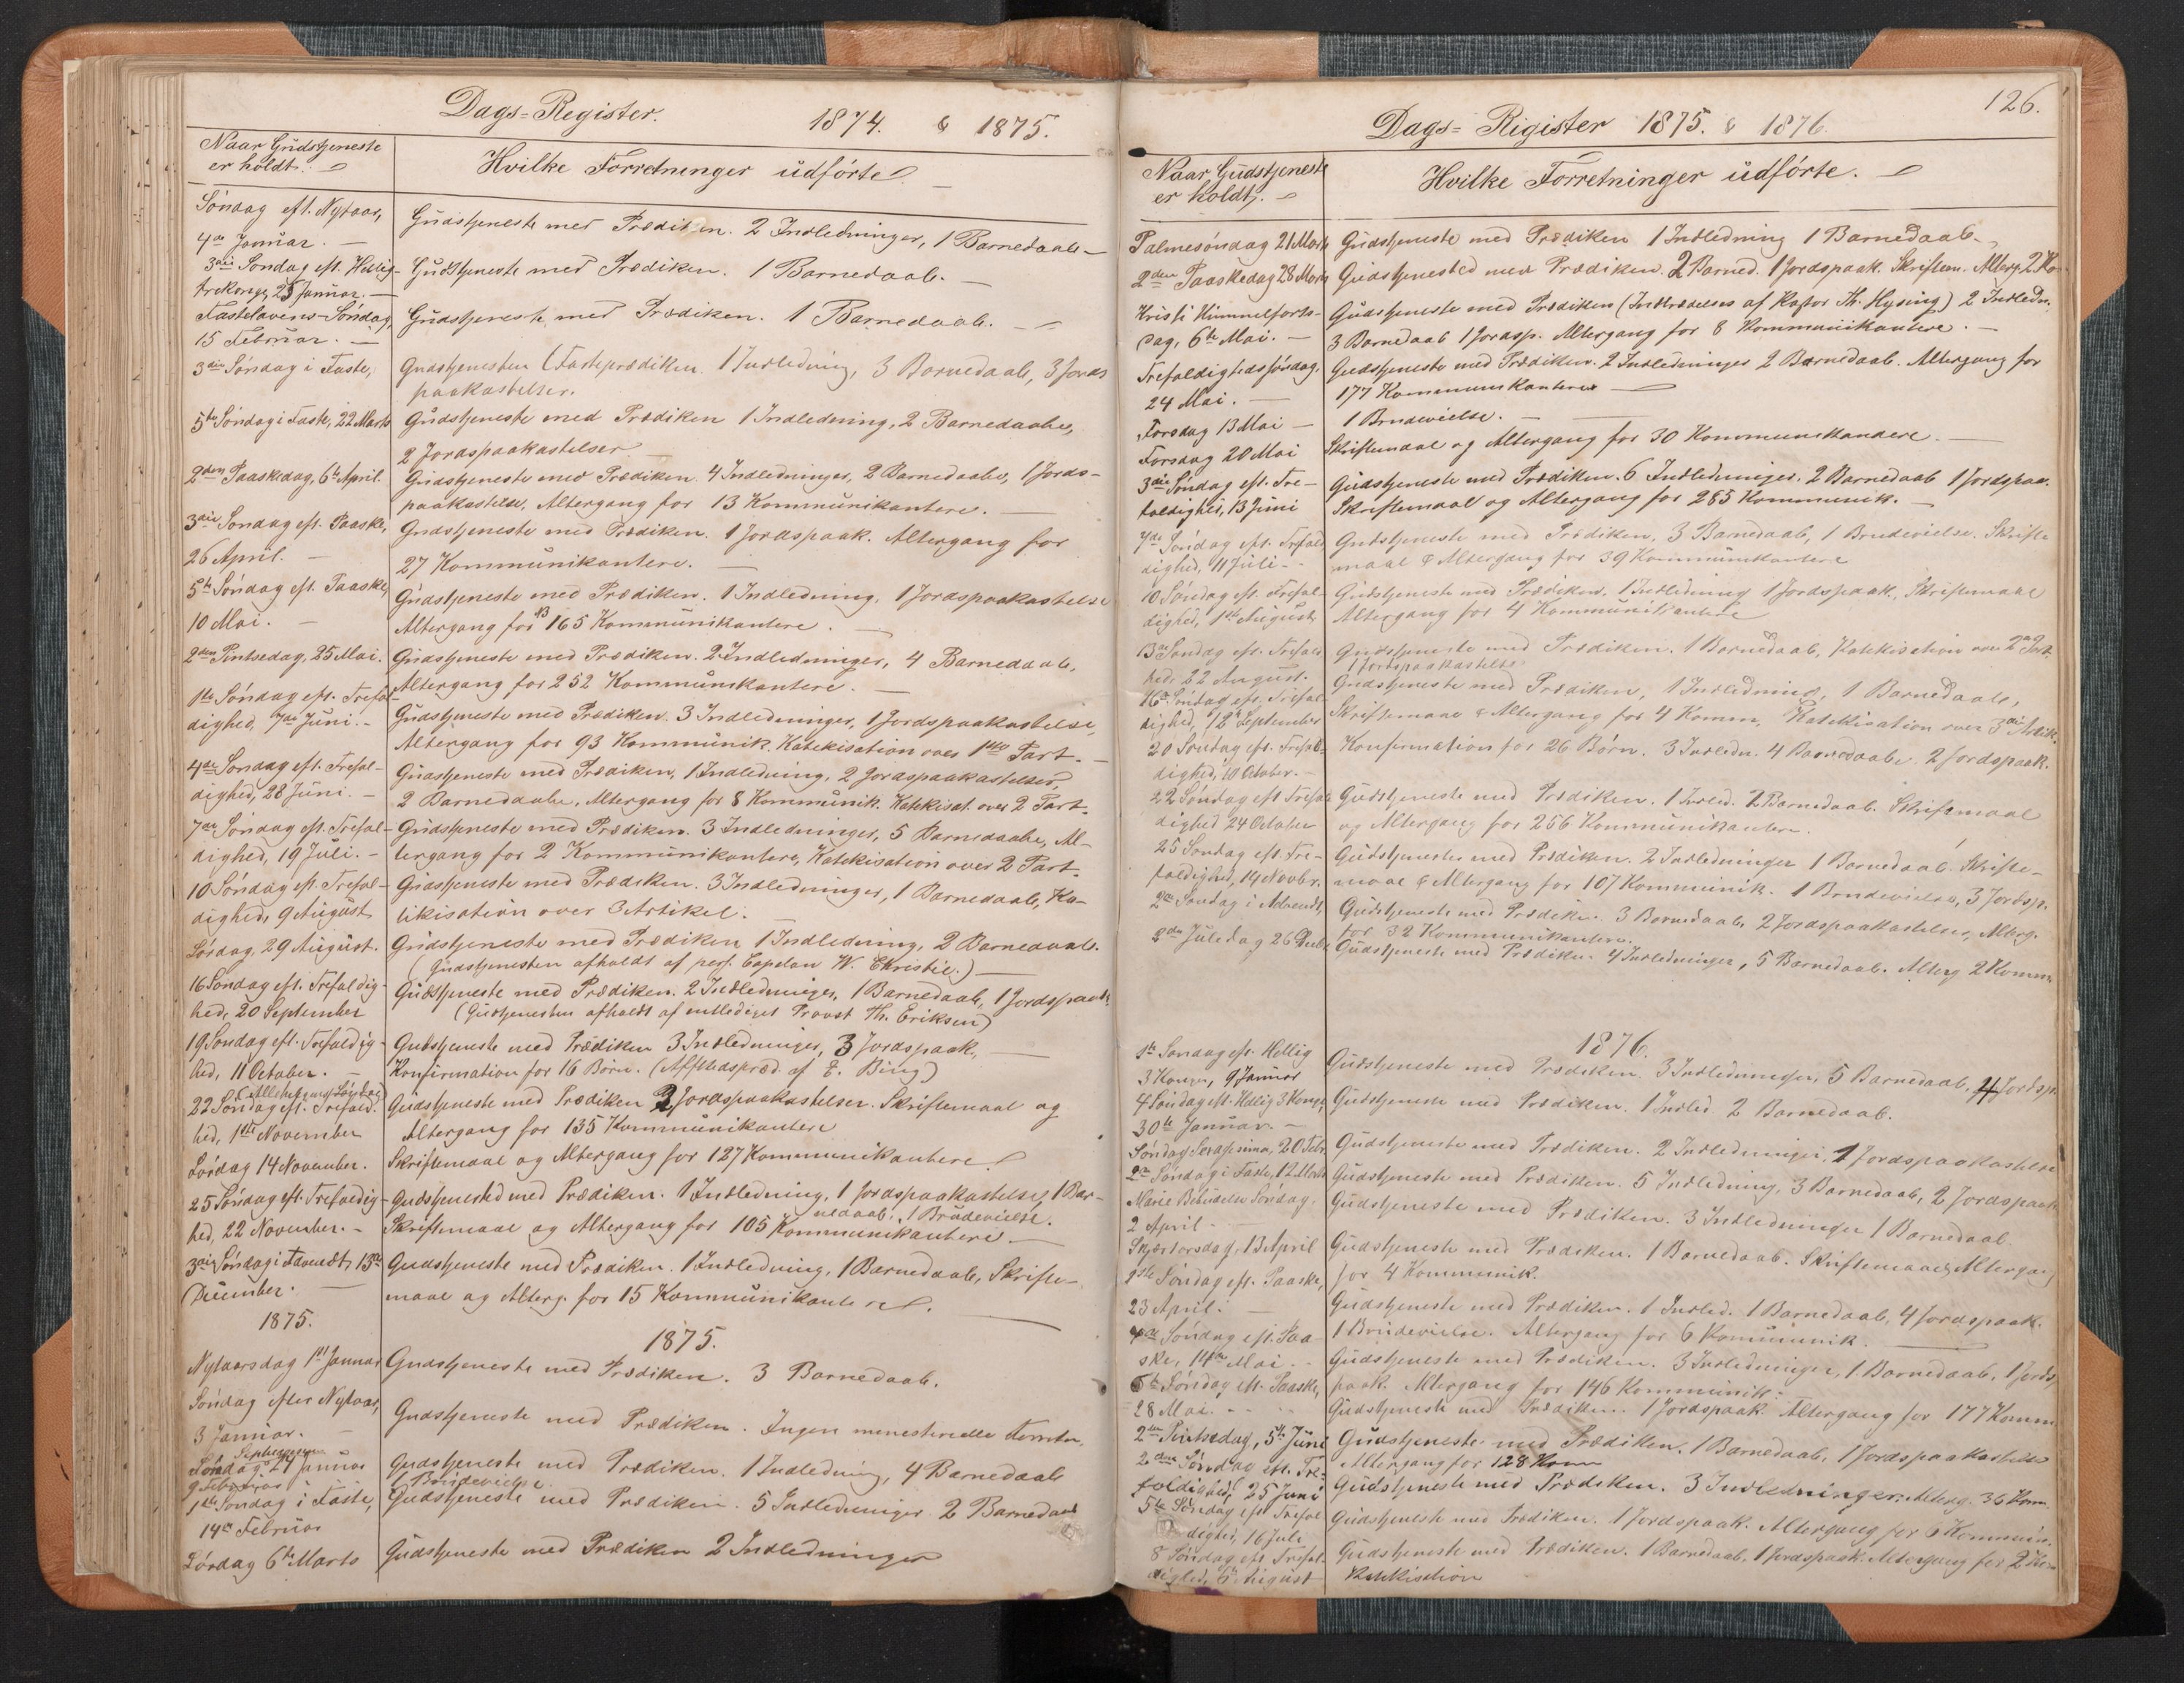 Dags-Register. 1874. & 1875.
Naar Gudstjeneste
er holdt.
Hvilke Forretninger udførte
Søndag eft. Nytaar,
4de Januar.
Gudstjeneste med Prædiken. 2 Indledninger, 1 Barnedaab
3die Søndag eft. Hellig-
trekonge, 25 Januar.
Gudstjeneste med Prædiken. 1 Barnedaab.
Fastelavens-Søndag,
15 Februar.
Gudstjeneste med Prædiken. 1 Barnedaab.
3die Søndag i Faste,
Gudstjenesten (Fasteprædiken. 1 Indledning, 3 Barnedaab, 3 Jords
paakastelser.
5te Søndag i Faste, 22 Marts
Gudstjeneste med Prædiken 1 Indledning, 2 Barnedaabe,
2 Jordspaakastelser
2den Paaskedag, 6te April.
Gudstjeneste med Prædiken. 4 Indledninger, 2 Barnedaabe, 1 Jords-
paakastelse, Altergang for 13 Kommunikantere.
3die Søndag eft. Paaske,
26 April.
Gudstjeneste med Prædiken. 1 Jordspaak. Altergang for
27 Kommunikantere.
5te Søndag eft. Paaske,
10 Mai.
Gudstjeneste med Prædiken. 1 Indledning, 1 Jordspaakastelse
Altergang for 165 Kommunikantere.
2den Pintsedag, 25 Mai.
Gudstjeneste med Prædiken. 2 Indledninger, 4 Barnedaab,
Altergang for 252 Kommunikantere.
1ste Søndag eft. Trefol-
dighed, 7de Juni.
Gudstjeneste med Prædiken. 3 Indledninger, 1 Jordspaakastelse,
Altergang for 93 Kommunik. Katekisation over 1ste Part.
4de Søndag eft. Trefol-
dighed, 28 Juni.
Gudstjeneste med Prædiken, 1 Indledning, 2 Jordspaakastelser,
2 Barnedaabe, Altergang for 8 Kommunik. Katekisat. over 2 Part.
7de Søndag eft. Trefol-
dighed, 19 Juli.
Gudstjeneste med Prædiken. 3 Indledninger, 5 Barnedaabe, Al-
tergang for 2 Kommunikantere, Katekisation over 2 Part.
10 Søndag eft. Trefol-
dighed, 9 August
Gudstjeneste med Prædiken. 3 Indledninger, 1 Barnedaab, Ka-
tikisation over 3 Artikel.
Lørdag, 29 August.
Gudstjeneste med Prædiken 1 Indledning, 2 Barnedaab.
(Gudstjenesten afholdt af pers. Capelan W. Christie.)
16 Søndag eft. Trefoldig-
hed, 20 September
Gudstjeneste med Prædiken. 2 Indledninger, 1 Barnedaab, 1 Jordspaak.
(Gudstjenesten afholdt af entlediget Provst Th. Eriksen)
19 Søndag eft. Trefoldig-
hed, 11 October.
Gudstjeneste med Prædiken 3 Indledninger, 3 Jordspaak,
Konfirmation for 16 Børn. (Afskedspræd. af F. Bing)
22 Søndag eft. Trefold.
hed, 1ste November
Gudstjeneste med Prædiken 2 Jordspaakastelser. Skriftemaal og
Altergang for 135 Kommunikantere
Lørdag 14 November.
Skriftemaal og Altergang for 127 Kommunikantere.
25 Søndag eft. Trefoldig-
hed, 22 November.
Gudstjenested med Prædiken. 1 Indledning, 1 Jordspaakastelse, 1 Bar-
nedaab, 1 Brudevielse.
Skriftemaal og Altergang for 105 Kommunikantere.
3die Søndag i Advendt, 13de
December.
Gudstjeneste med Prædiken. 1 Indledning, 1 Barnedaab, Skrifte-
maal og Alterg. for 15 Kommunikantere.
1875.
1875.
Nytaarsdag 1ste Januar
Gudstjeneste med Prædiken. 3 Barnedaab.
Søndag efter Nytaar,
3 Januar.
Gudstjeneste med Prædiken. Ingen ministerielle Forretn.
Septuagesima
Søndag 24 Januar
Gudstjeneste med Prædiken. 1 Indledning, 4 Barnedaab
1 Brudevielse
1ste Søndag i Faste,
14de Februar
Gudstjeneste med Prædiken. 5 Indledninger 2 Barnedaab
Lørdag 6te Marts
Gudstjeneste med Prædiken 2 Indledninger
126.
Dags-Rigister 1875. & 1876.
Naar Gudstjeneste
er holdt.
Hvilke Forretninger udførte.
Palmesøndag 21 Marts
Gudstjeneste med Prædiken 1 Indledning 1 Barnedaab
2den Paaskedag 28 Marts
Gudstjenested med Prædiken. 2 Barned. 1 Jordspaak. Skriftem. Alterg. 2 Ko-
Kristi Himmelfarts-
dag, 6te Mai.
Gudstjeneste med Prædiken (Indtrædelses af Pastor Th. Hysing) 2 Indledn.
3 Barnedaab 1 Jordsp. Altergang for 8 Kommunikantere.
Trefoldighedssøndag,
24 Mai.
Gudstjeneste med Prædiken. 2 Indledninger 2 Barnedaab. Altergang for
177 Kommunikantere
Torsdag 13 Mai
1 Brudevielse.
Torsdag 20 Mai
Skriftemaal og Altergang for 30 Kommunikandere.
3die Søndag eft. Tre-
foldighed, 13 Juni
Gudstjeneste med Prædiken. 6 Indledninger. 2 Barnedaab 1 Jordspaa.
Skriftemaal og Altergang for 285 Kommunik.
7de Søndag eft. Trefol-
dighed, 11 Juli
Gudstjeneste med Prædiken, 3 Barnedaab, 1 Brudevielse. Skrifte
maal & Altergang for 39 Kommunikantere
10 Søndag eft. Trefol-
dighed, 1ste August
Gudstjeneste med Prædiken. 1 Indledning 1 Jordspaak. Skriftemaal
Altergang for 4 Kommunikantere
13de Søndag eft. Trefoldig
hed, 22 August.
Gudstjeneste med Prædiken. 1 Barnedaab, Katekisation over 2den Part.
1 Jordspaakastelse
16de Søndag eft. Trefol
dighed, 12 September
Gudstjeneste med Prædiken, 1 Indledning, 1 Barnedaab,
Skriftemaal & Altergang for 4 Komm. Katekisation over 3die Artik.
20 Søndag eft. Trefol-
dighed, 10 October.
Konfirmation for 26 Børn. 3 Indledn. 4 Barnedaabe. 2 Jordspaak.
22 Søndag eft Trefol
dighed 24 October
Gudstjeneste med Prædiken. 1 Indled. 2 Barnedaab. Skriftemaal
og Altergang for 256 Kommunikantere.
25 Søndag eft. Tre-
foldighed, 14 Novbr.
Gudstjeneste med Prædiken. 2 Indledninger 1 Barnedaab. Skrifte-
maal & Altergang for 107 Kommunik. 1 Brudevielse, 3 Jordsp.
2den Søndag i Advendt,
Gudstjeneste med Prædiken. 3 Barnedaab, 2 Jordspaakastelser, Alterg.
for 32 Kommunikantere.
2den Juledag 26 Decbr.
Gudstjeneste med Prædiken. 4 Indledninger, 5 Barnedaab. Alterg 2 Komm.
1876.
1ste Søndag eft. Hellig
3 Konger, 9 Januar
Gudstjeneste med Prædiken. 3 Indledninger, 5 Barnedaab, 4 Jordsp.
4 Søndag eft. Hellig 3 Konge,
30te Januar.
Gudstjeneste med Prædiken. 1 Indled. 2 Barnedaab.
Søndag Sexagesima, 20 Febr.
Gudstjeneste med Prædiken. 2 Indledninger, 1 Jordspaakastelse
2den Søndag i Faste, 12 Marts
Gudstjeneste med Prædiken. 5 Indledning, 3 Barnedaab, 2 Jordspaak
Marie Bebudelse Søndag.
2 April
Gudstjeneste med Prædiken. 3 Indledninger 1 Barnedaab.
Skjærtorsdag, 13 April
Gudstjeneste med Prædiken. 1 Barnedaab. Skriftemaal, Altergang
for 4 Kommunik.
1ste Søndag eft. Paaske,
23 April.
Gudstjeneste med Prædiken. 1 Indled. 1 Barnedaab, 4 Jordspaak.
1 Brudevielse. Altergang for 6 Kommunik.
4de Søndag eft. Paa
ske, 14de Mai.
Gudstjeneste med Prædiken. 3 Indledninger, 1 Barnedaab, 1 Jords,
paak. Altergang for 146 Kommunik.
6te Søndag eft. Paaske,
28 Mai.
Gudstjeneste med Prædiken. 1 Jordspaak. Altergang for 177 Komm.
2den Pintsedag, 5te Juni
Gudstjeneste med Prædiken. 1 Barnedaab, 1 Jordspaakastelse
Altergang for 128 Kom
2den Søndag eft. Tre-
foldighed, 25 Juni
Gudstjeneste med Prædiken. 3 Indledninger. Alterg. 36 Kom.
5te Søndag eft Trefol
dighed, 16 Juli
Gudstjeneste med Prædiken. 1 Jordspaak. Altergang for 6 Kommun.
8 Søndag eft Trefol-
dighed, 6te August
Gudstjeneste med Prædiken. 1 Barnedaab, 1 Jordspaak. Altergang for 2 Ko-
Katekisation